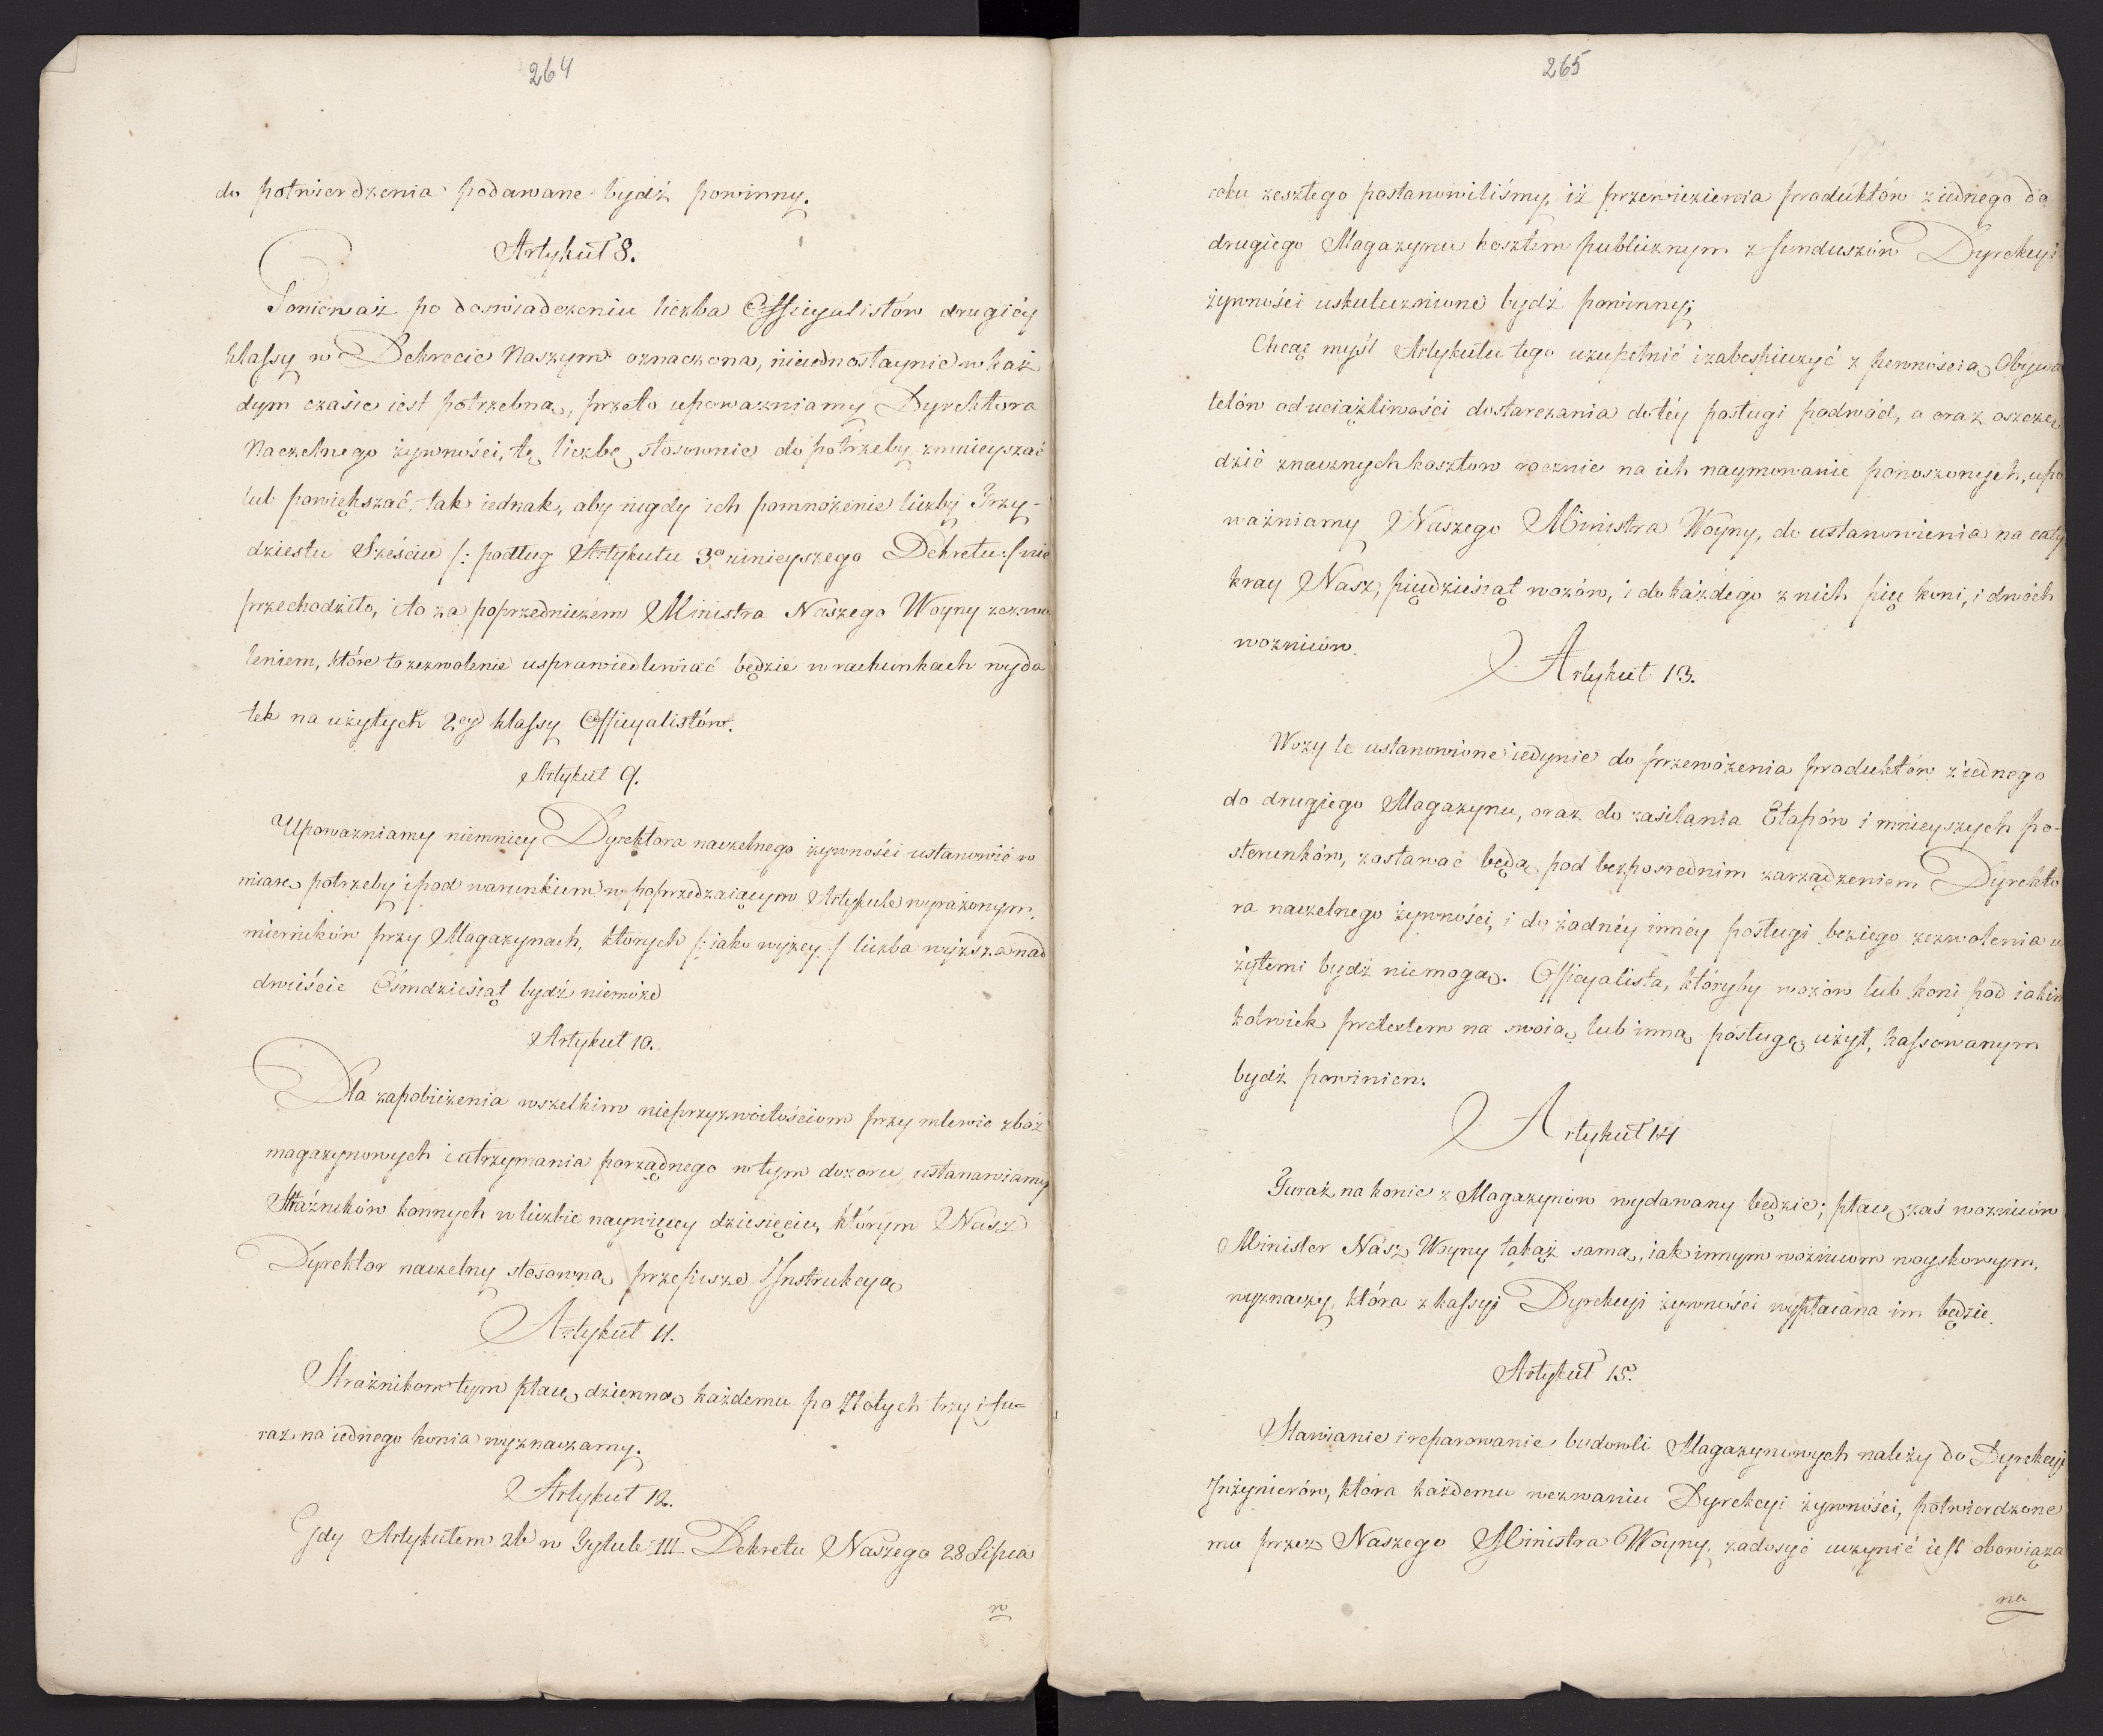 264
do potwierdzenia podawane bydź powinny.
Artykuł 8.
Ponieważ po doswiadczeniu liczba Officyalistów drugiéy
klassy w Dekrecie Naszym oznaczona, nieiednostaynie w każ
dym czasie iest potrzebna, przeto upoważniamy Dyrektora
Naczelnego żywności, tę liczbę stosownie do potrzeby zmnieyszać
lub powiększać, tak iednak, aby nigdy ich pomnożenie liczby Trzy-
dziestu Sześciu /: podług Artykułu 3º ninieyszego Dekretu :/ nie
przechodziło, i to za poprzedniczém Ministra Naszego Woyny zezwo
leniem, które to zezwolenie usprawiedliwiać będzie w rachunkach wyda
tek na użytych 2éy klassy Officyalistów.
Artykuł 9.
Upoważniamy niemniey Dyrektora naczelnego żywności ustanowić w
miarę potrzeby i pod warunkiem w poprzedzaiącym Artykule wyrażonym,
mierników przy Magazynach, których /: iako wyżey :/ liczba wyższa nad
dwieście Ośmdziesiąt bydź niemoże
Artykuł 10.
Dla zapobieżenia wszelkim nieprzyzwoitościom przy mlewie zbóż
magazynowych i utrzymania porządnego w tym dozoru, ustanawiamy
Strażników konnych w liczbie naywięcy dziesięciu, którym Nasz
Dyrektor naczelny stosowną przepisze Instrukcyą
Artykuł 11.
Strażnikom tym płacę dzienną każdemu po złotych trzy i fu=
raż na iednego konia wyznaczamy.
Artykuł 12.
Gdy Artykułem 26 w Tytule III Dekretu Naszego 28 Lipca
r
265
roku zeszłego postanowiliśmy, iż przewiezienia produktów z iednego do
drugiego Magazynu kosztem publicznym z funduszów Dyrekcyi
żywności uskutecznione bydź powinny;
Chcąc myśl Artykułu tego uzupełnić i zabespieczyć z pewnością Obywa
telów od uciążliwości dostarczania do téy posługi podwód, a oraz oszczę
dzić znacznych kosztow rocznie na ich naymowanie ponoszonych, upo
ważniamy Naszego Ministra Woyny, do ustanowienia na cały
kray Nasz, piędziesiąt wozów, i do każdego z nich pięć koni, i dwóch
wozniców.
Artykuł 13.
Wozy te ustanowione iedynie do przewożenia produktów z iednego
do drugiego Magazynu, oraz do zasilania Etapów i mnieyszych po-
sterunków, zostawać będą pod bezpośrednim zarządzeniem Dyrekto
ra naczelnego żywności, i do żadnéy innéy posługi bez iego zezwolenia u
żytemi bydź niemogą. Officyalista, któryby wozów lub koni pod iakim
kolwiek pretextem na swoią lub inną posługę użył, kassowanym
bydź powinien.
Artykuł 14
Furaż na konie z Magazynów wydawany będzie; płacę zaś wozniców
Minister Nasz Woyny takąż samą, iak innym woźnicom woyskowym,
wyznaczy, która z kassyi Dyrekcyi żywności wypłacana im będzie.
Artykuł 15.
Stawianie i reparowanie budowli Magazynowych należy do Dyrekcyi
Inżynierów, która każdemu wezwaniu Dyrekcyi żywności, potwierdzone
mu przez Naszego Ministra Woyny, zadosyć uczynić iest obowiąza
na